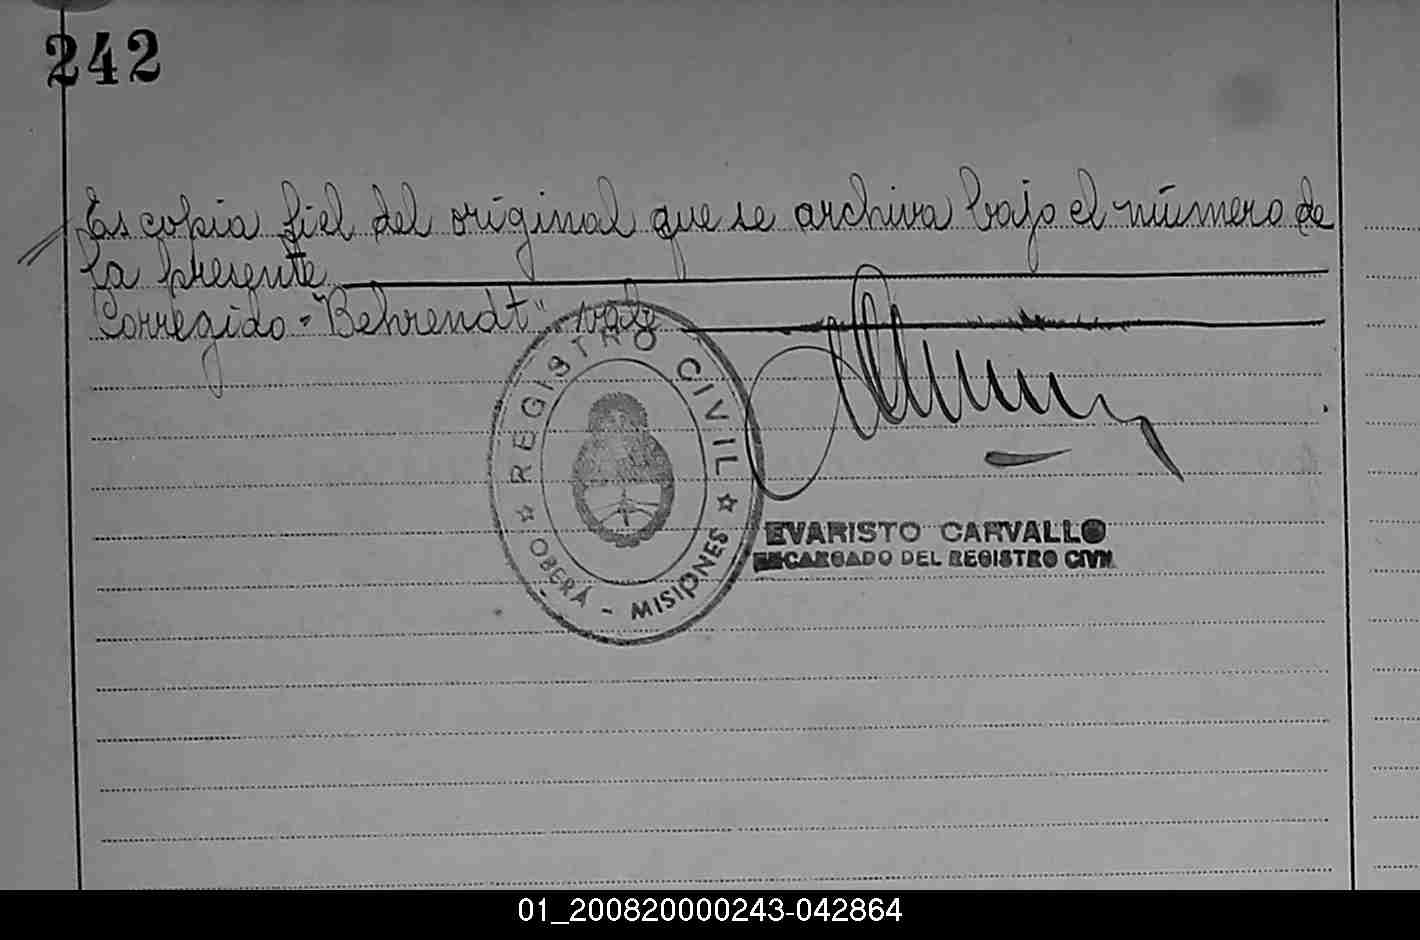 242
Es copia fiel del original que se archiva bajo el número de
la presente
Corregido - "Behrendt" - vale
REGISTRO CIVIL
OBERÁ - MISIONES
EVARISTO CARVALLO
ENCARGADO DEL REGISTRO CIVIL
01_200820000243-042864